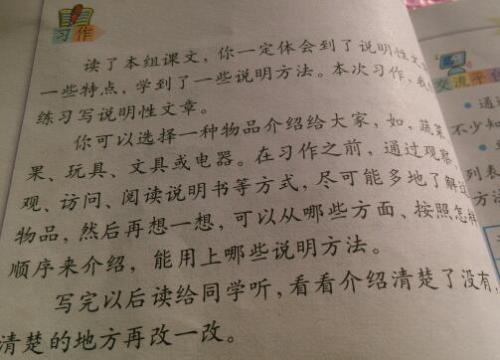 习作
读了本组课文，你一定体会到了说明性文
一些特点，学到了一些说明方法。本次习作，我
练习写说明性文章。
你可以选择一种物品介绍给大家，如，蔬菜
果、玩具、文具或电器。在习作之前，通过观察
观、访问、阅读说明书等方式，尽可能多地了解这
物品，然后再想一想，可以从哪些方面、按照怎样
顺序来介绍，能用上哪些说明方法。
写完以后读给同学听，看看介绍清楚了没有，
清楚的地方再改一改。
交流平
通过
不少知
列表
方法